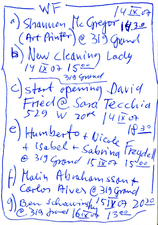 WF 14 IX 07
a) Shaunna McGregor 18 30
(Art Advisor) @ 319 Grand
b) New Cleaning Lady
14 IX 07 15 00
319 Grand
c) start opening David
Fried @ Sara Tecchia
529 W 20th 14 IX 07
18 30
e) Humberto + Nicole
+ Isabel + Sabrina Freydell
@ 319 Grand 15 IX 07 15 00
f) Malin Abrahamsson +
Carlos Alves @ 319 Grand
15 IX 07 20 20
g) Ben
@ 319 Grand 16 IX 07 13 00